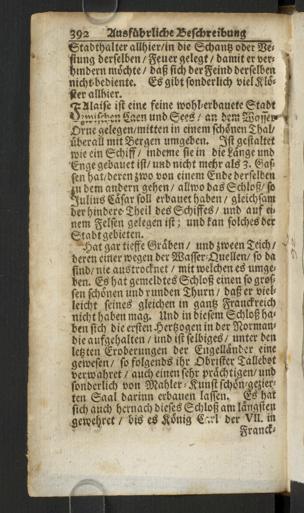 392 Ausführliche Beschreibung
Statthalter allhier/in die Schantz oder Ve-
stung derselben / Feuer gelegt / damit er ver-
hindern möchte / daß sich der Feind derselben
nicht bediente. Es gibt sonderlich viel Klö-
ster allhier.
Falaise ist eine feine wohl-erbauete Stadt
zwischen Caen und Sees / an dem Wasser
Orne gelegen/mitten in einem schönen Thal/
überall mit Bergen umgeben. Ist gestaltet
wie ein Schiff / indeme sie in die Länge und
Enge gebauet ist/ und nicht mehr als 3. Gas-
sen hat/deren zwo von einem Ende derselben
zu dem andern gehen / allwo das Schloß/ so
Julius Cäsar soll erbauet haben / gleichsam
der hindere Theil des Schiffes / und auf ei-
nem Felsen gelegen ist; und kan solches der
Stadt gebieten.
Hat gar tieffe Gräben / und zween Teich /
deren einer wegen der Wasser-Quellen/ so da
sind/ nie austrocknet / mit welchen es umge-
ben. Es hat gemeldtes Schloß einen so gros-
sen schönen und runden Thurn/ daß er viel-
leicht seines gleichen in gantz Franckreich
nicht haben mag. Und in diesem Schloß ha-
ben sich die ersten Hertzogen in der Norman-
die aufgehalten / und ist selbiges / unter den
letzten Eroderungen der Engelländer eine
gewesen / so folgends ihr Obrister Talebot
verwahret / auch einen sehr prächtigen/ und
sonderlich von Mahler-Kunst schön gezier-
ten Saal darinn erbauen lassen. Es hat
sich auch hernach dieses Schloß am längsten
gewehret / bis es König Carl der VII. in
Franck-